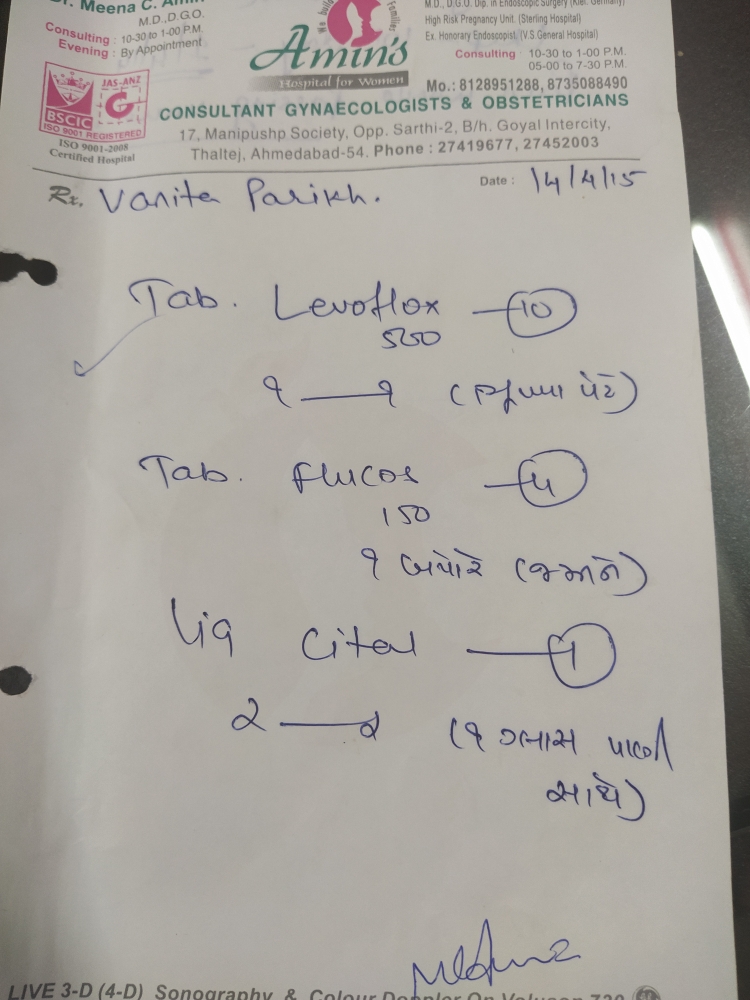 Dr. Meena C. Amin
M.D.,D.G.O.
Consulting : 10-30 to 1-00 P.M.
Evening : By Appointment
We build Families
Amin's
Hospital for Women
M.D., D.G.O. Dip. in Endoscopic Surgery (Kiel, Germany)
High Risk Pregnancy Unit. (Sterling Hospital)
Ex. Honorary Endoscopist. (V.S General Hospital)
Consulting : 10-30 to 1-00 P.M.
05-00 to 7-30 P.M.
Mo.: 8128951288, 8735088490
JAS-ANZ
BSCIC
ISO 9001 REGISTERED
ISO 9001-2008
Certified Hospital
CONSULTANT GYNAECOLOGISTS & OBSTETRICIANS
17, Manipushp Society, Opp. Sarthi-2, B/h. Goyal Intercity,
Thaltej, Ahmedabad-54. Phone : 27419677, 27452003
Rx. Vanita Parikh. Date : 14/4/15
Tab. Levoflox — 10
500
૧ — ૧ (ભૂખ્યા પેટે)
Tab. Flucos — 4
150
૧ બપોરે (જમીને)
Liq Cital — 1
૨ — ૨ (૧ ગ્લાસ પાણી
સાથે)
LIVE 3-D (4-D) Sonography & Colour Doppler On Voluson 730